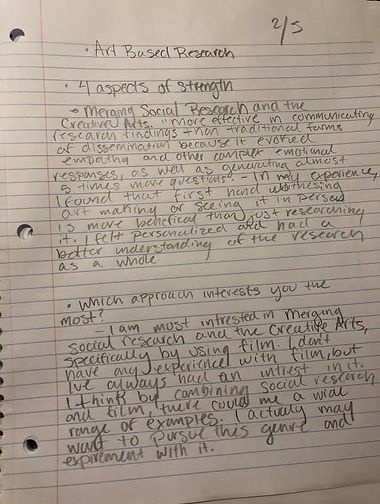 2/5
• Art Based Research
• 4 aspects of strength
- Merging Social Research and the
Creative Arts. "more effective in communicating
research findings than traditional forms
of dissemination because it evoked
empathy and other complex emotional
responses, as well as generating almost
5 times more questions". In my experience,
I found that first hand witnessing
art making or seeing it in person
is more benefical than just researching
it. I felt personalized and had a
better understanding of the research
as a whole
• Which approach interests you the
most?
- I am most intrested in Merging
Social research and the Creative Arts,
specifically by using film. I don't
have any experience with film, but
I've always had an intrest in it.
I think by combining social research
and film, there could me a wide
range of examples. I actually may
want to pursue this genre and
expirement with it.